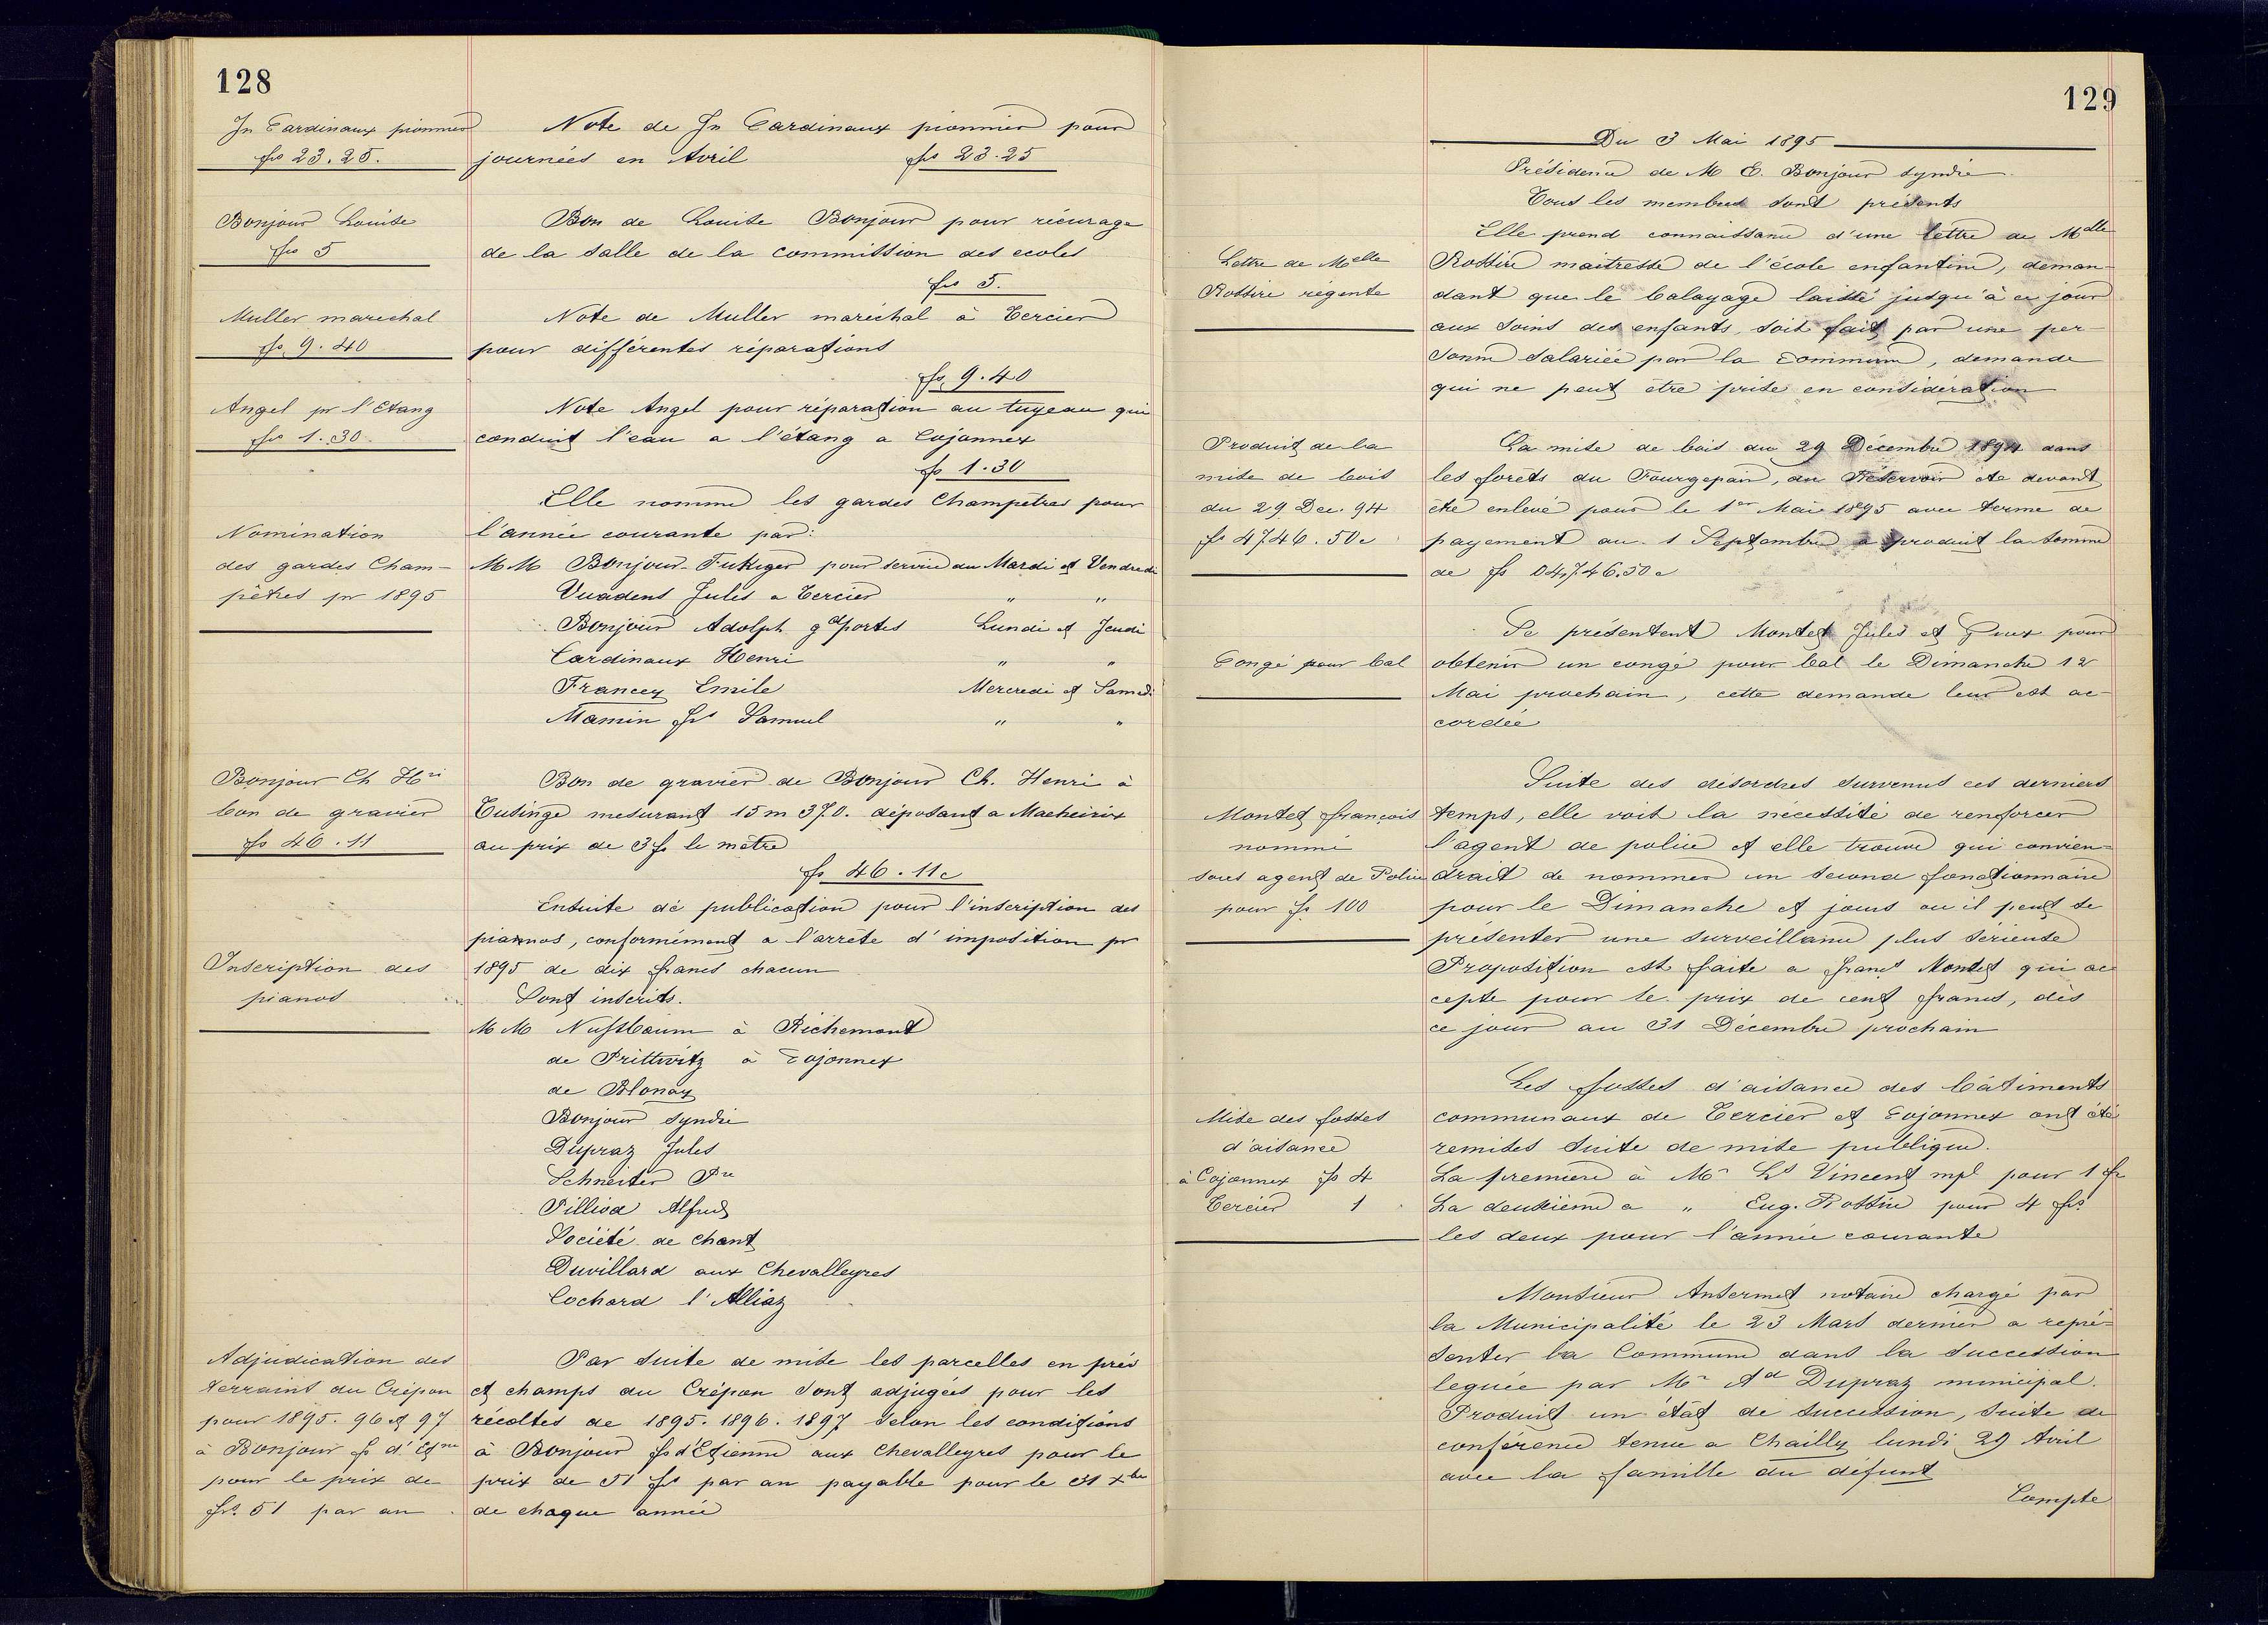 128
Jn Cardinaux pionnier
frs 23.25.
Note de Jn Cardinaux pionnier pour
journées en Avril frs 23.25
Bonjour Louise
frs 5
Bon de Louise Bonjour pour récurage
de la salle de la commission des ecoles
frs 5.
Muller marechal
frs 9.40
Note de Muller maréchal à Tercier
pour différentes réparations
frs 9.40
Angel pr l'Etang
frs 1.30.
Note Angel pour réparation au tuyeau qui
conduit l'eau a l'étang a Cojonnex
frs 1.30
Nomination
des gardes Cham-
pêtres pr 1895
Elle nomme les gardes Champetres pour
l'année courante par:
MM Bonjour-Fukiger pour service du Mardi et Vendredi
Vuadens Jules a Tercier " "
Bonjour Adolph gd portes Lundi et Jeudi
Cardinaux Henri " "
Francey Emile Mercredi et Samedi
Mamin frs Samuel " "
Bonjour Ch Hri
bon de gravier
frs 46.11
Bon de gravier de Bonjour Ch. Henri à
Tusinge mesurant 15 m 370. déposant a Macheirix
au prix de 3 fr le mètre
frs 46.11c
Inscription des
pianos
Ensuite de publication pour l'inscription des
pianos, conformément a l'arrête d'imposition pr
1895 de dix francs chacun
Sont inscrits.
MM Nussbaum à Richemont
de Prittwitz à Cojonnex
de Blonay
Bonjour syndic
Dupraz Jules
Schneiter
Pilliod Alfred
Société de chant
Duvillard aux Chevalleyres
Cochard l'Alliaz
Adjudication des
terrains du Crépon
pour 1895. 96 et 97
à Bonjour fs d'Etne
pour le prix de
frs. 51 par an
Par suite de mise les parcelles en près
et champs du Crépon sont adjugées pour les
récoltes de 1895. 1896. 1897 selon les conditions
à Bonjour fs d'Etienne aux Chevalleyres pour le
prix de 51 frs par an payable pour le 31 xbre
de chaque année
129
Du 3 Mai 1895
Présidence de M E. Bonjour syndic
Tous les membres sont présents
Lettre de Melle
Rossire régente
Elle prend connaissance d'une lettre de Mdlle
Rossire maitresse de l'école enfantine, deman-
dant que le balayage laissé jusqu'à ce jour
aux soins des enfants soit fait par une per-
sonne salariée par la commune, demande
qui ne peut être prise en considération
Produit de la
mise de bois
du 29 Dec. 94
fr 4746.50c
La mise de bois du 29 Décembre 1894 dans
les forets du Fourgepan, du Réservoir etc devant
être enlevé pour le 1er Mai 1895 avec terme de
payement au 1 Septembre a produit la somme
de frs 4,746.50c
Congé pour bal
Se présentent Montet Jules et Guex pour
obtenir un congé pour bal le Dimanche 12
Mai prochain, cette demande leur est ac-
cordée
Montet françois
nommé
sous agent de Police
pour fr 100
Suite des désordres survenus ces derniers
temps, elle voit la nécessité de renforcer
l'agent de police et elle trouve qui convien-
drait de nommer un second fonctionnaire
pour le Dimanche et jours ou il peut se
présenter une surveillance plus sérieuse
Proposition est faite a frans Montet qui ac
cepte pour le prix de cent francs, dès
ce jour au 31 Décembre prochain
Mise des fosses
d'aisance
à Cojonnex fs 4
Tercier 1
Les fosses d'aisance des bâtiments
communaux de Tercier et Cojonnex ont été
remises suite de mise publique.
La première à Mr Ls Vincent mpl pour 1 fr
La deuxième a " Eug. Rossire pour 4 frs
les deux pour l'année courante
Monsieur Ansermet notaire chargé par
la Municipalité le 23 Mars dernier a repré-
senter la Commune dans la succession
leguée par Mr Ad Dupraz municipal.
Produit un état de succession, suite de
conférence tenue a Chailly lundi 29 Avril
avec la famille du défunt
Compte